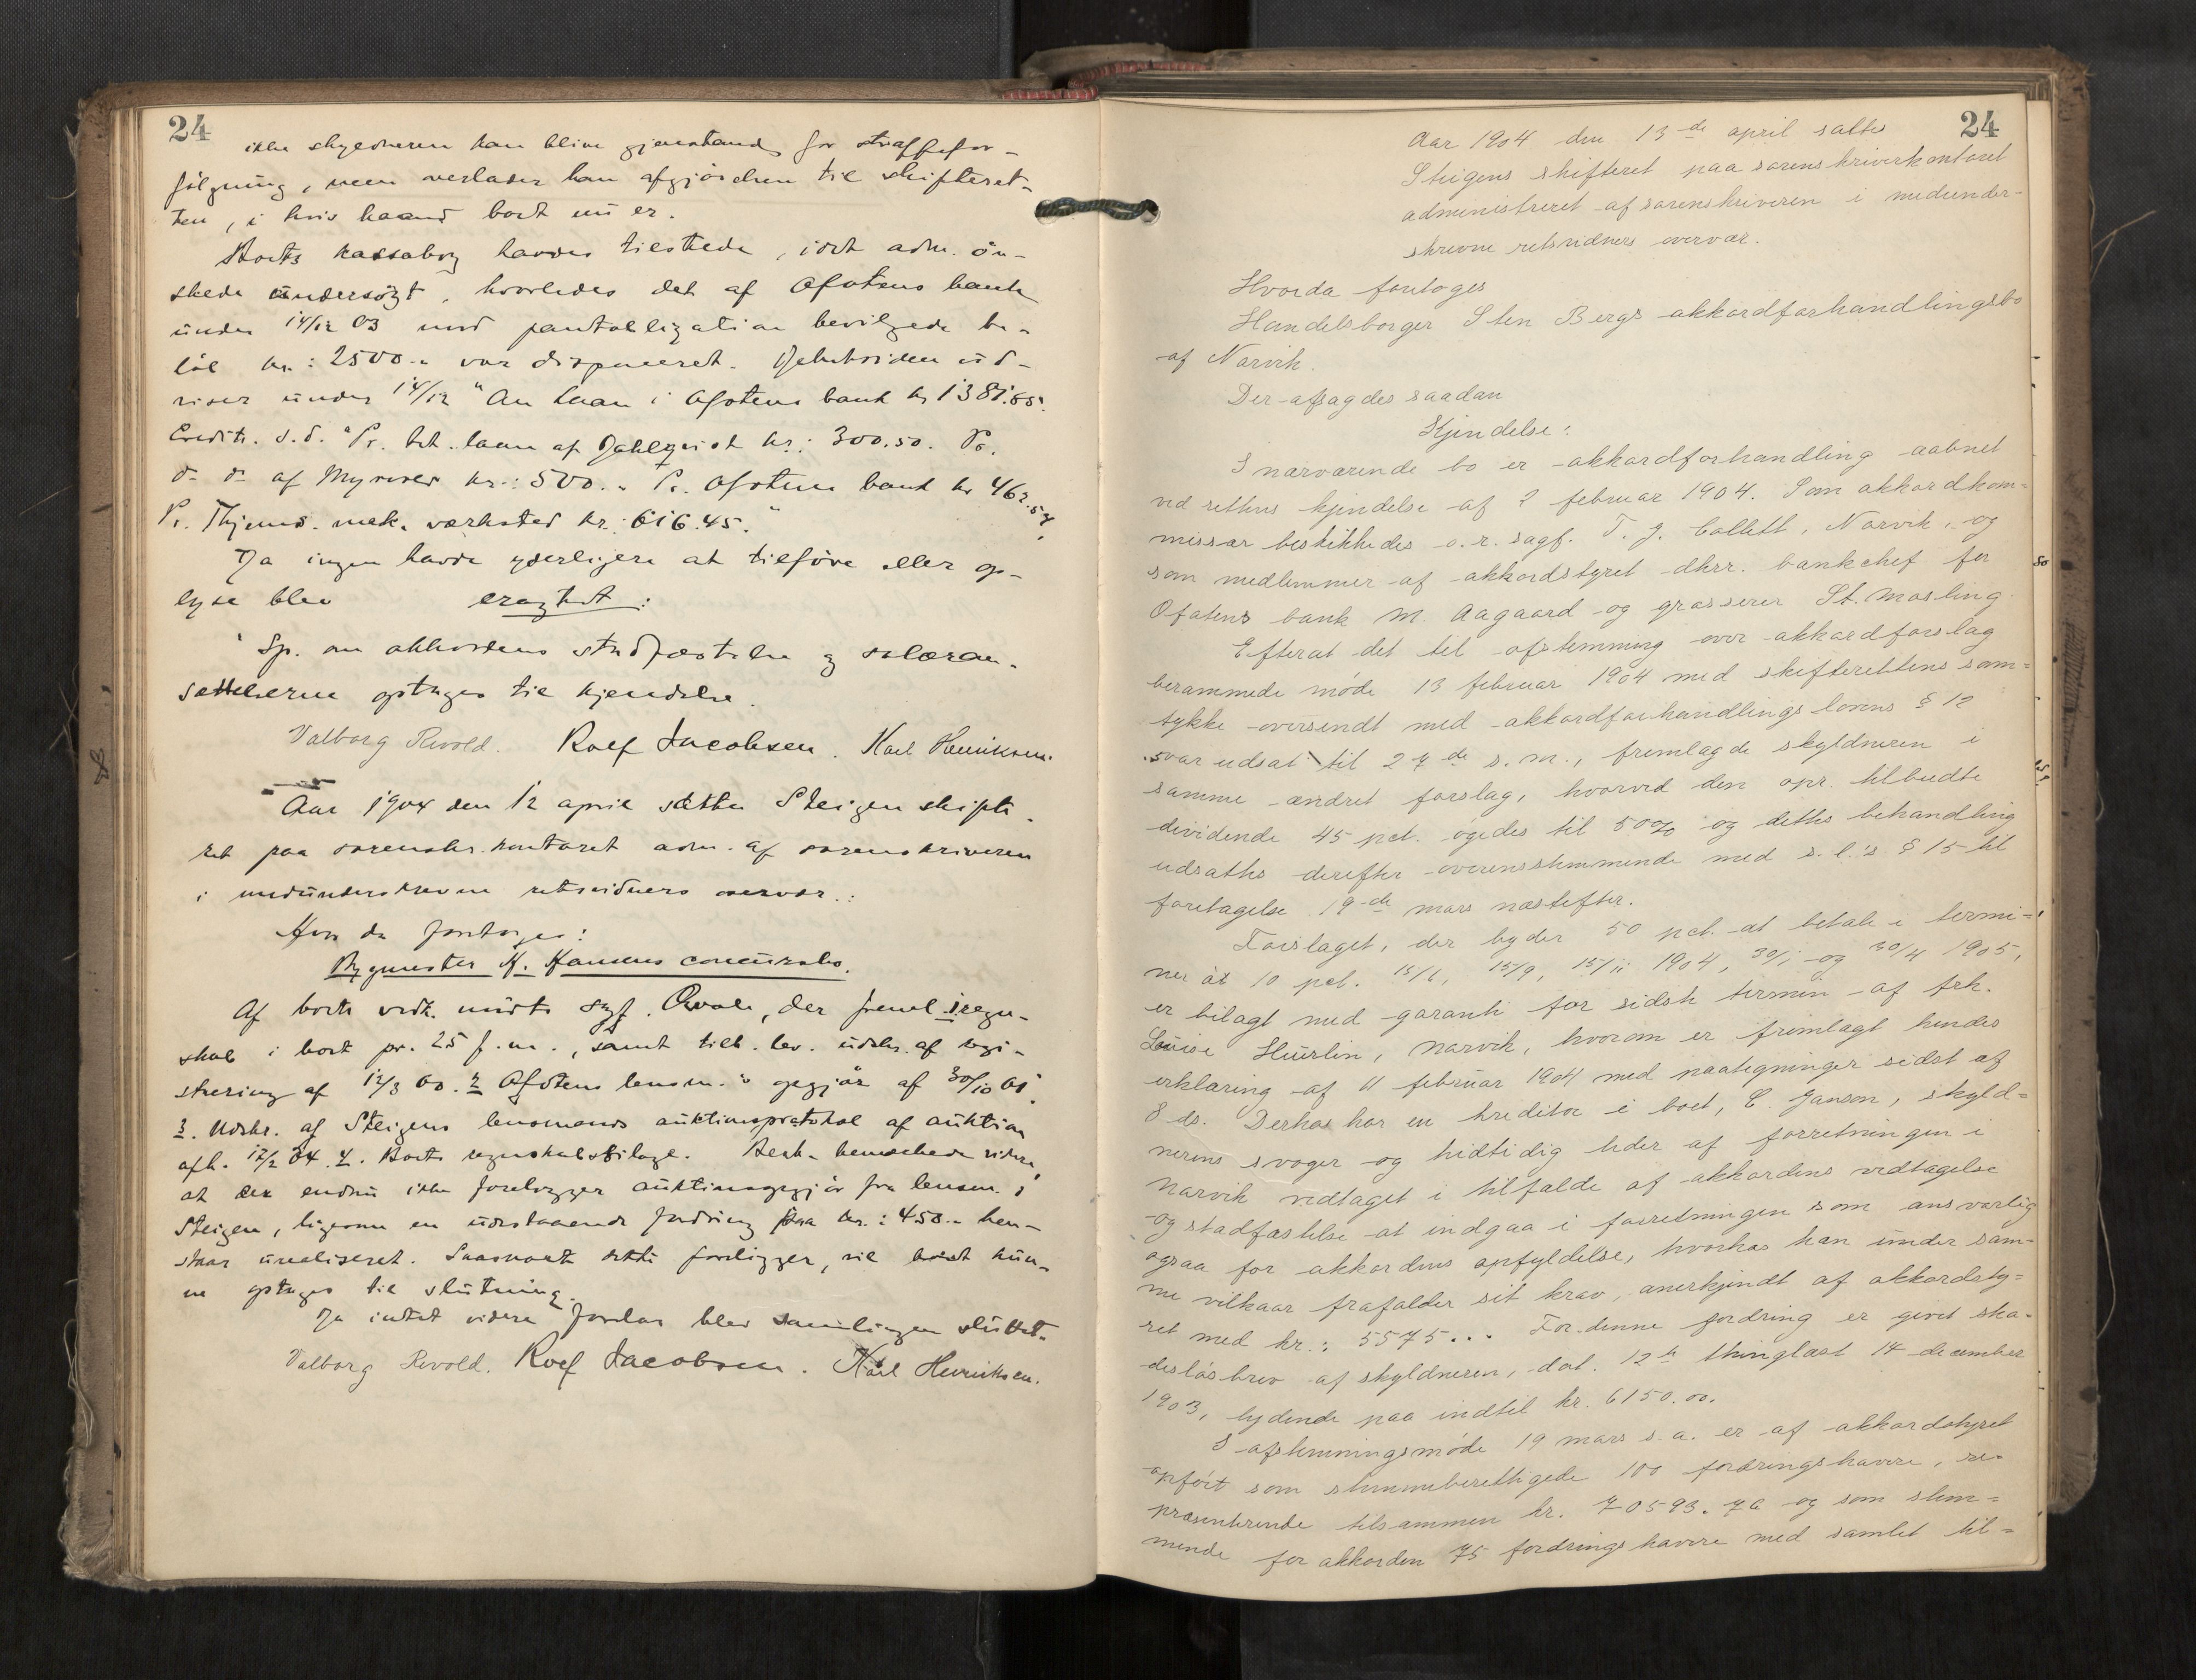 24
ikke skyldneren kan blive gjenstand for straffefor-
følgning, men overlader han afgjørelsen til skifteret-
ten, i hvis haand boet nu er.
Boets kassabog havdes tilstede, idet adm. øn-
skede undersøgt, hvorledes det af Ofotens bank
under 14/12 03 mod pantobligation bevilgede be-
løb kr.: 2500.- var disponeret. Debetsiden ud-
viser under 14/12 "An Laan i Ofotens bank kr 1381.85".
Credit. s.d. "Pr. bet. laan af Dahlqvist kr.: 300.50. Pr.
do do af Myrvold kr.: 500.- Pr. Ofotens bank kr 462.54,
Pr. Thjems. mek. værksted kr.: 616.45."
Da ingen havde yderligere at tilføre eller op-
lyse blev eragtet:
Sp. om akkordens stadfæstelse og salæran-
sættelserne optages til kjendelse.
Valborg Revold. Rolf Jacobsen. Karl Henriksen.
Aar 1904 den 12 april sattes Steigen skifte-
ret paa sorenskr.kontoret adm. af sorenskriveren
i medunderskrevne retsvidners overvær.:
Hvor da foretoges:
Bygmester H. Hansens concursbo.
Af boets vedk. mødte sagf. Qvale, der freml. 1 regn-
skab i boet pr. 25 f.m., samt till. lev. udskr. af regi-
strering af 12/3 00. 2 Ofotens lensm.'s opgjør af 30/10 00.
3. Udskr. af Steigens lensmands auktionsprotokol af auktion
afh. 12/2 04. 4. Boets regnskabsbilage. Best. bemærkede videre,
at der endnu ikke foreligger auktionsopgjør fra lensm. i
Steigen, ligesom en udestaaende fordring paa kr.: 450.- hen-
staar urealiseret. Saasnart dette foreligger, vil boet kun-
ne optages til slutning.
Da intet videre forelaa blev samlingen sluttet.
Valborg Revold. Rolf Jacobsen. Karl Henriksen.
24
Aar 1904 den 13de april sattes
Steigens skifteret paa sorenskriverkontoret
administreret af sorenskriveren i medunder-
skrevne retsvidners overvær.
Hvorda foretoges
Handelsborger Sten Bergs akkordforhandlingsbo
af Narvik.
Der afsagdes saadan
Kjendelse:
I nærværende bo er akkordforhandling aabnet
ved rettens kjendelse af 2 februar 1904. Som akkordkom=
missær beskikkedes o.r.sagf. T. J. Collett, Narvik, og
som medlemmer af akkordstyret dhrr. bankchef for
Ofotens bank M. Aagaard og grosserer St. Mosling.
Efterat det til afstemning over akkordforslag
berammede møde 13 februar 1904 med skifterettens sam=
tykke overensst med akkordforhandlingslovens § 12
var udsat til 27de s.m., fremlagde skyldneren i
samme ændret forslag, hvorved den opr. tilbudte
dividende 45 pct. øgedes til 50% og dettes behandling
udsattes derefter overensstemmende med s. l.'s § 15 til
foretagelse 19de mars næstefter.
Forslaget, der byder 50 pct. at betale i termi=
ner à 10 pct. 15/6, 15/9, 15/11 1904, 30/1 og 30/4 1905,
er bilagt med garanti for sidste termin af frk.
Louise Hürlin, Narvik, hvorom er fremlagt hendes
erklæring af 11 februar 1904 med paategninger sidst af
8 ds. Derhos har en kreditor i boet, C. Janson, skyld=
nerens svoger og hidtidig leder af forretningen i
Narvik vedtaget i tilfælde af akkordens vedtagelse
og stadfæstelse at indgaa i forretningen som ansvarlig
ogsaa for akkordens opfyldelse, hvorhos han under sam-
me vilkaar frafalder sit krav, anerkjendt af akkordsty=
ret med kr.: 5575... For denne fordring er givet ska-
desløsbrev af skyldneren, dat. 12te thinglæst 14 december
1903, lydende paa indtil kr. 6150.00.
I afstemningsmøde 19 mars s.a. er af akkordstyret
opført som stemmeberettigede 100 fordringshavere, re-
præsenterende tilsammen kr. 70593.76 og som stem=
mende for akkorden 75 fordringshavere med samlet til=